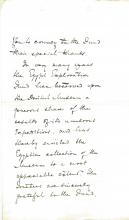 their special thanks.
In very many years
the Egypt Exploration
Fund has bestowed upon
the British Museum a
generous share of the
results of its numerous
Expeditions, and has
thereby enriched the
Egyptian collection of the
Museum to a most
appreciable extent. The
Trustees are sincerely
grateful to the Fund